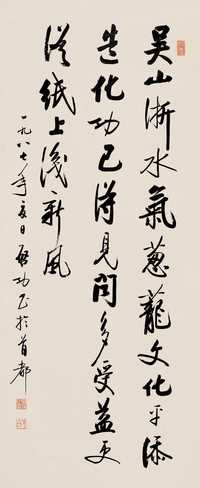 吳山浙水氣蔥蘢文化平添
造化功已得見聞多受益更
從紙上新風
一九八七年夏日啟功書於首都